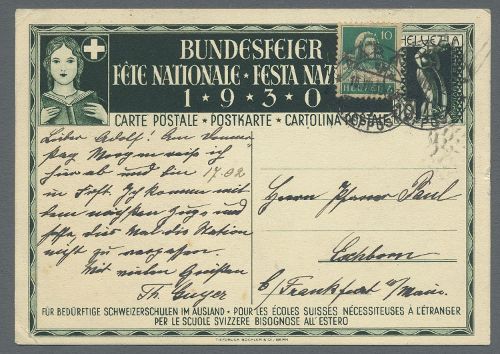 BUNDESFEIER
FÊTE NATIONALE • FESTA NAZ
1 • 9 • 3 • 0
10
HELVETIA
HELVETIA
CARTE POSTALE • POSTKARTE • CARTOLINA
Lieber Adolf! Am Donners-
tag Morgen reise ich
hier ab und bin 17.02
in Frkft. Ich komme mit
dem nächsten Zug und
hoffe, die Station
nicht zu vergessen.
Mit vielen Grüßen
Th. Guyer
Herrn Pfarrer Paul
Eschborn
b/Frankfurt a/Main.
FÜR BEDÜRFTIGE SCHWEIZERSCHULEN IM AUSLAND • POUR LES ÉCOLES SUISSES NÉCESSITEUSES A L'ÉTRANGER
PER LE SCUOLE SVIZZERE BISOGNOSE ALL'ESTERO
TIEFDRUCK BÜCHLER & Cº, BERN